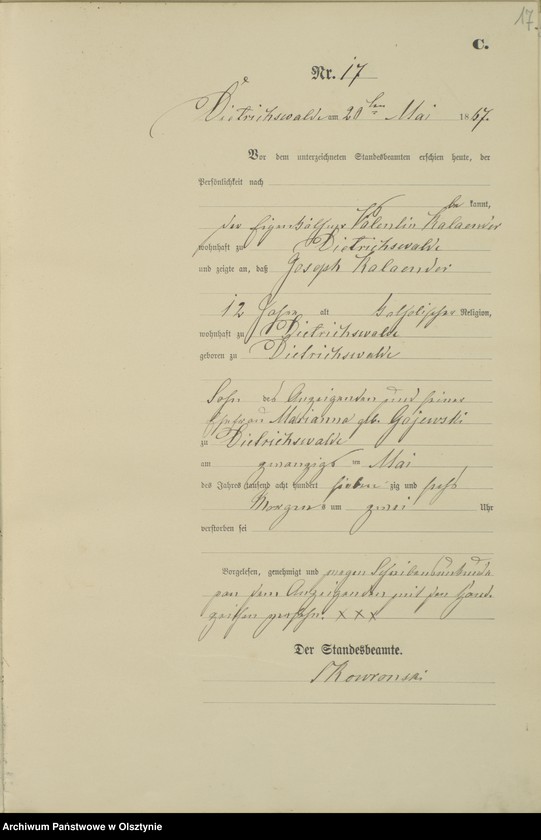 17.
C.
Nr. 17
Dietrichswalde am 20ten Mai 1867.
Vor dem unterzeichneten Standesbeamten erschien heute, der
Persönlichkeit nach
be kannt,
der Eigenkäthner Valentin Kalaender
wohnhaft zu Dietrichswalde
und zeigte an, daß Joseph Kalaender
12 Jahre alt katholischer Religion,
wohnhaft zu Dietrichswalde
geboren zu Dietrichswalde
Sohn des Anzeigenden und seiner
Ehefrau Marianna geb. Gajewski
zu Dietrichswalde
am zwanzigt ten Mai
des Jahres tausend acht hundert sieben zig und sechs
Morgens um zwei Uhr
verstorben sei
Vorgelesen, genehmigt und wegen Schreibensunkunde
von dem Anzeigenden mit den Hand
zeichen versehn. XXX
Der Standesbeamte.
Skowronski
Archiwum Państwowe w Olsztynie